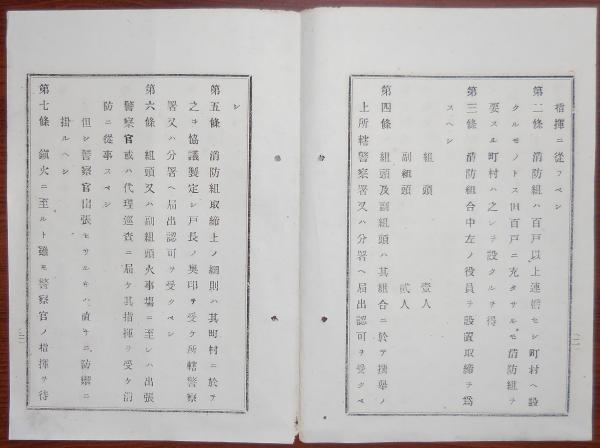 指揮ニ從フベシ
第二條 消防組ハ百戸以上連檐セシ町村ヘ設
クルモノトス但百戸ニ充タサルモ消防組ヲ
要スル町村ハ之レヲ設クルヲ得
第三條 消防組合中左ノ役員ヲ設置取締ヲ爲
スヘシ
組頭 壹人
副組頭 貳人
第四條 組頭及副組頭ハ其組合ニ於テ撰擧ノ
上所轄警察署又ハ分署ヘ届出認可ヲ受クベ
シ
第五條 消防組取締上ノ細則ハ其町村ニ於テ
之ヲ協議製定シ戸長ノ奥印ヲ受ケ所轄警察
署又ハ分署ヘ届出認可ヲ受クベシ
第六條 組頭又ハ副組頭火事塲ニ至レハ出張
警察官或ハ代理巡査ニ届ケ其指揮ヲ受ケ消
防ニ從事スベシ
但シ警察官出張セサルモハ直チニ防禦ニ
掛ルヘシ
第七條 鎭火ニ至ルト雖モ警察官ノ指揮ヲ待